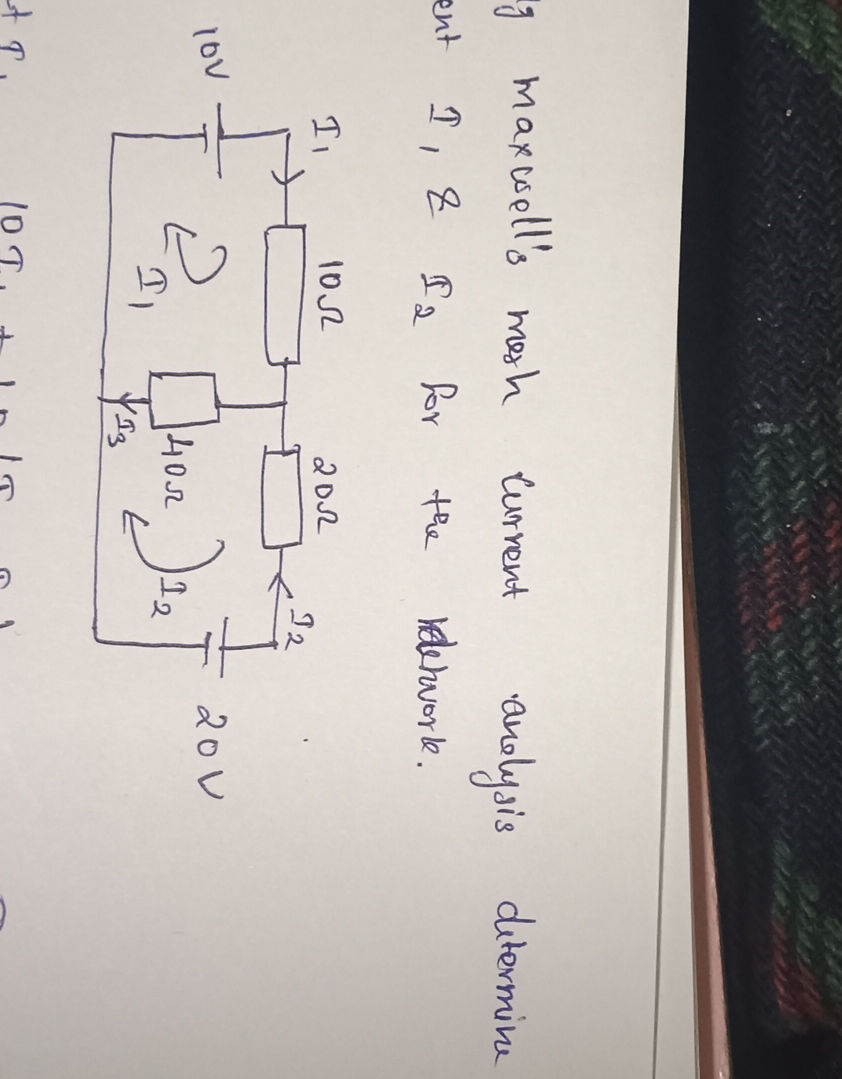 maxwell's mesh current analysis ditermine
I1 & I2 for the network.
I1
10Ω
20Ω
I2
10V
I1
40Ω
I3
I2
20V